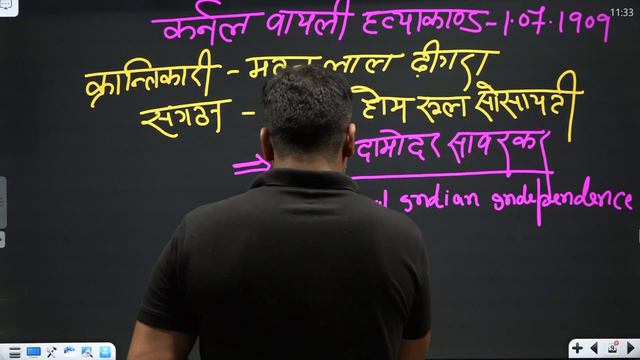 11:33
कर्नल वायली हत्याकाण्ड-1.07.1909
क्रान्तिकारी - मदन लाल ढींगरा
सगठन - होम रूल सोसायटी
⇒ दामोदर सावरकर
Indian Independence